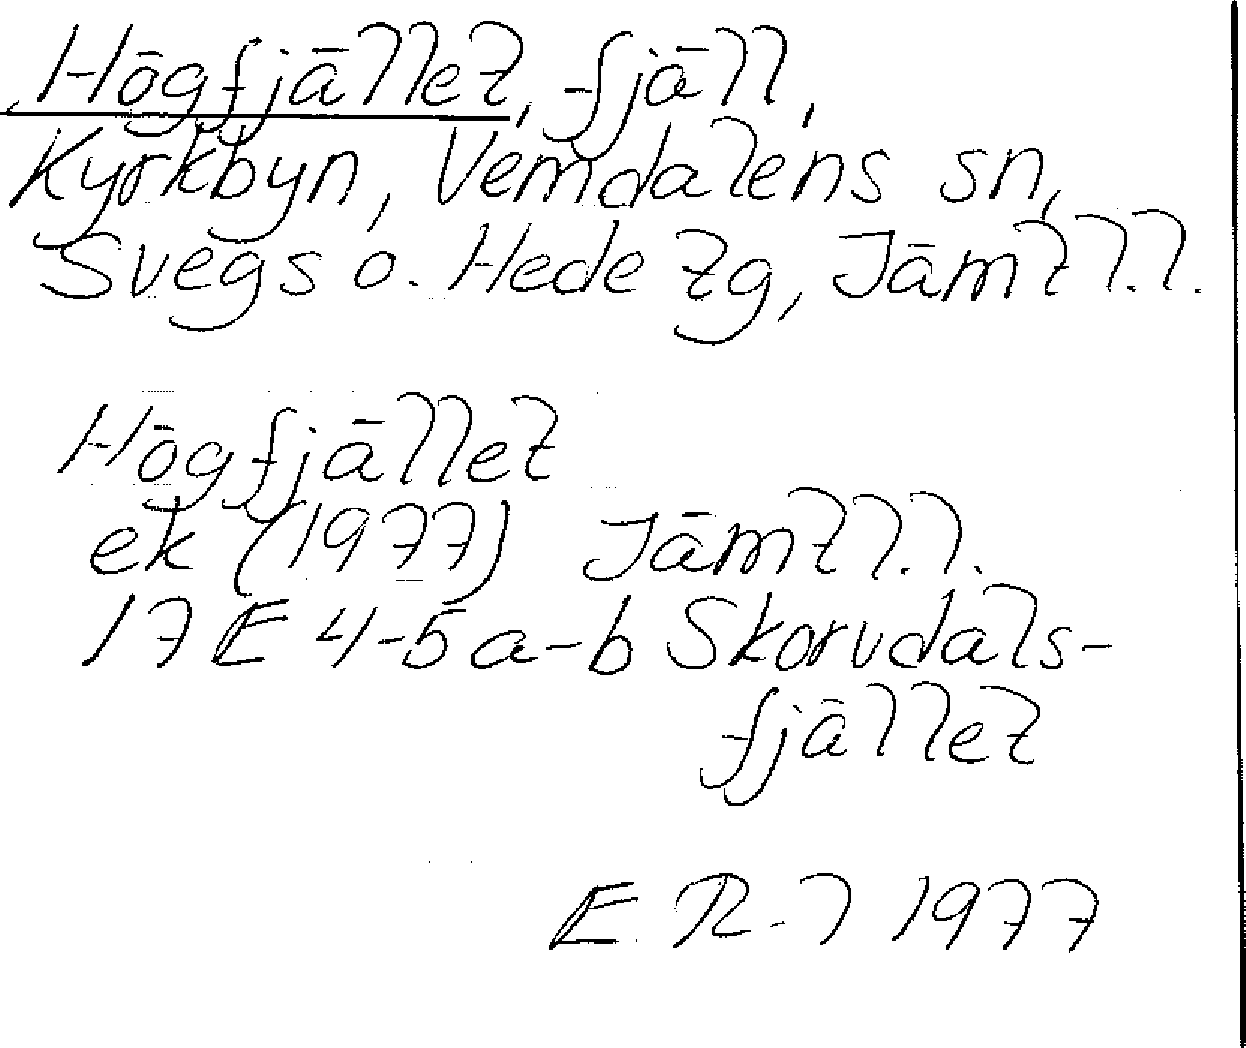 Högfjället, fjäll,
Kyrkbyn, Vemdalens sn,
Svegs o. Hede tg, Jämtl.l.
Högfjället
ek (1977) Jämtl.l.
17 E 4-5 a-b Skorvdals-
fjället
E R-l 1977